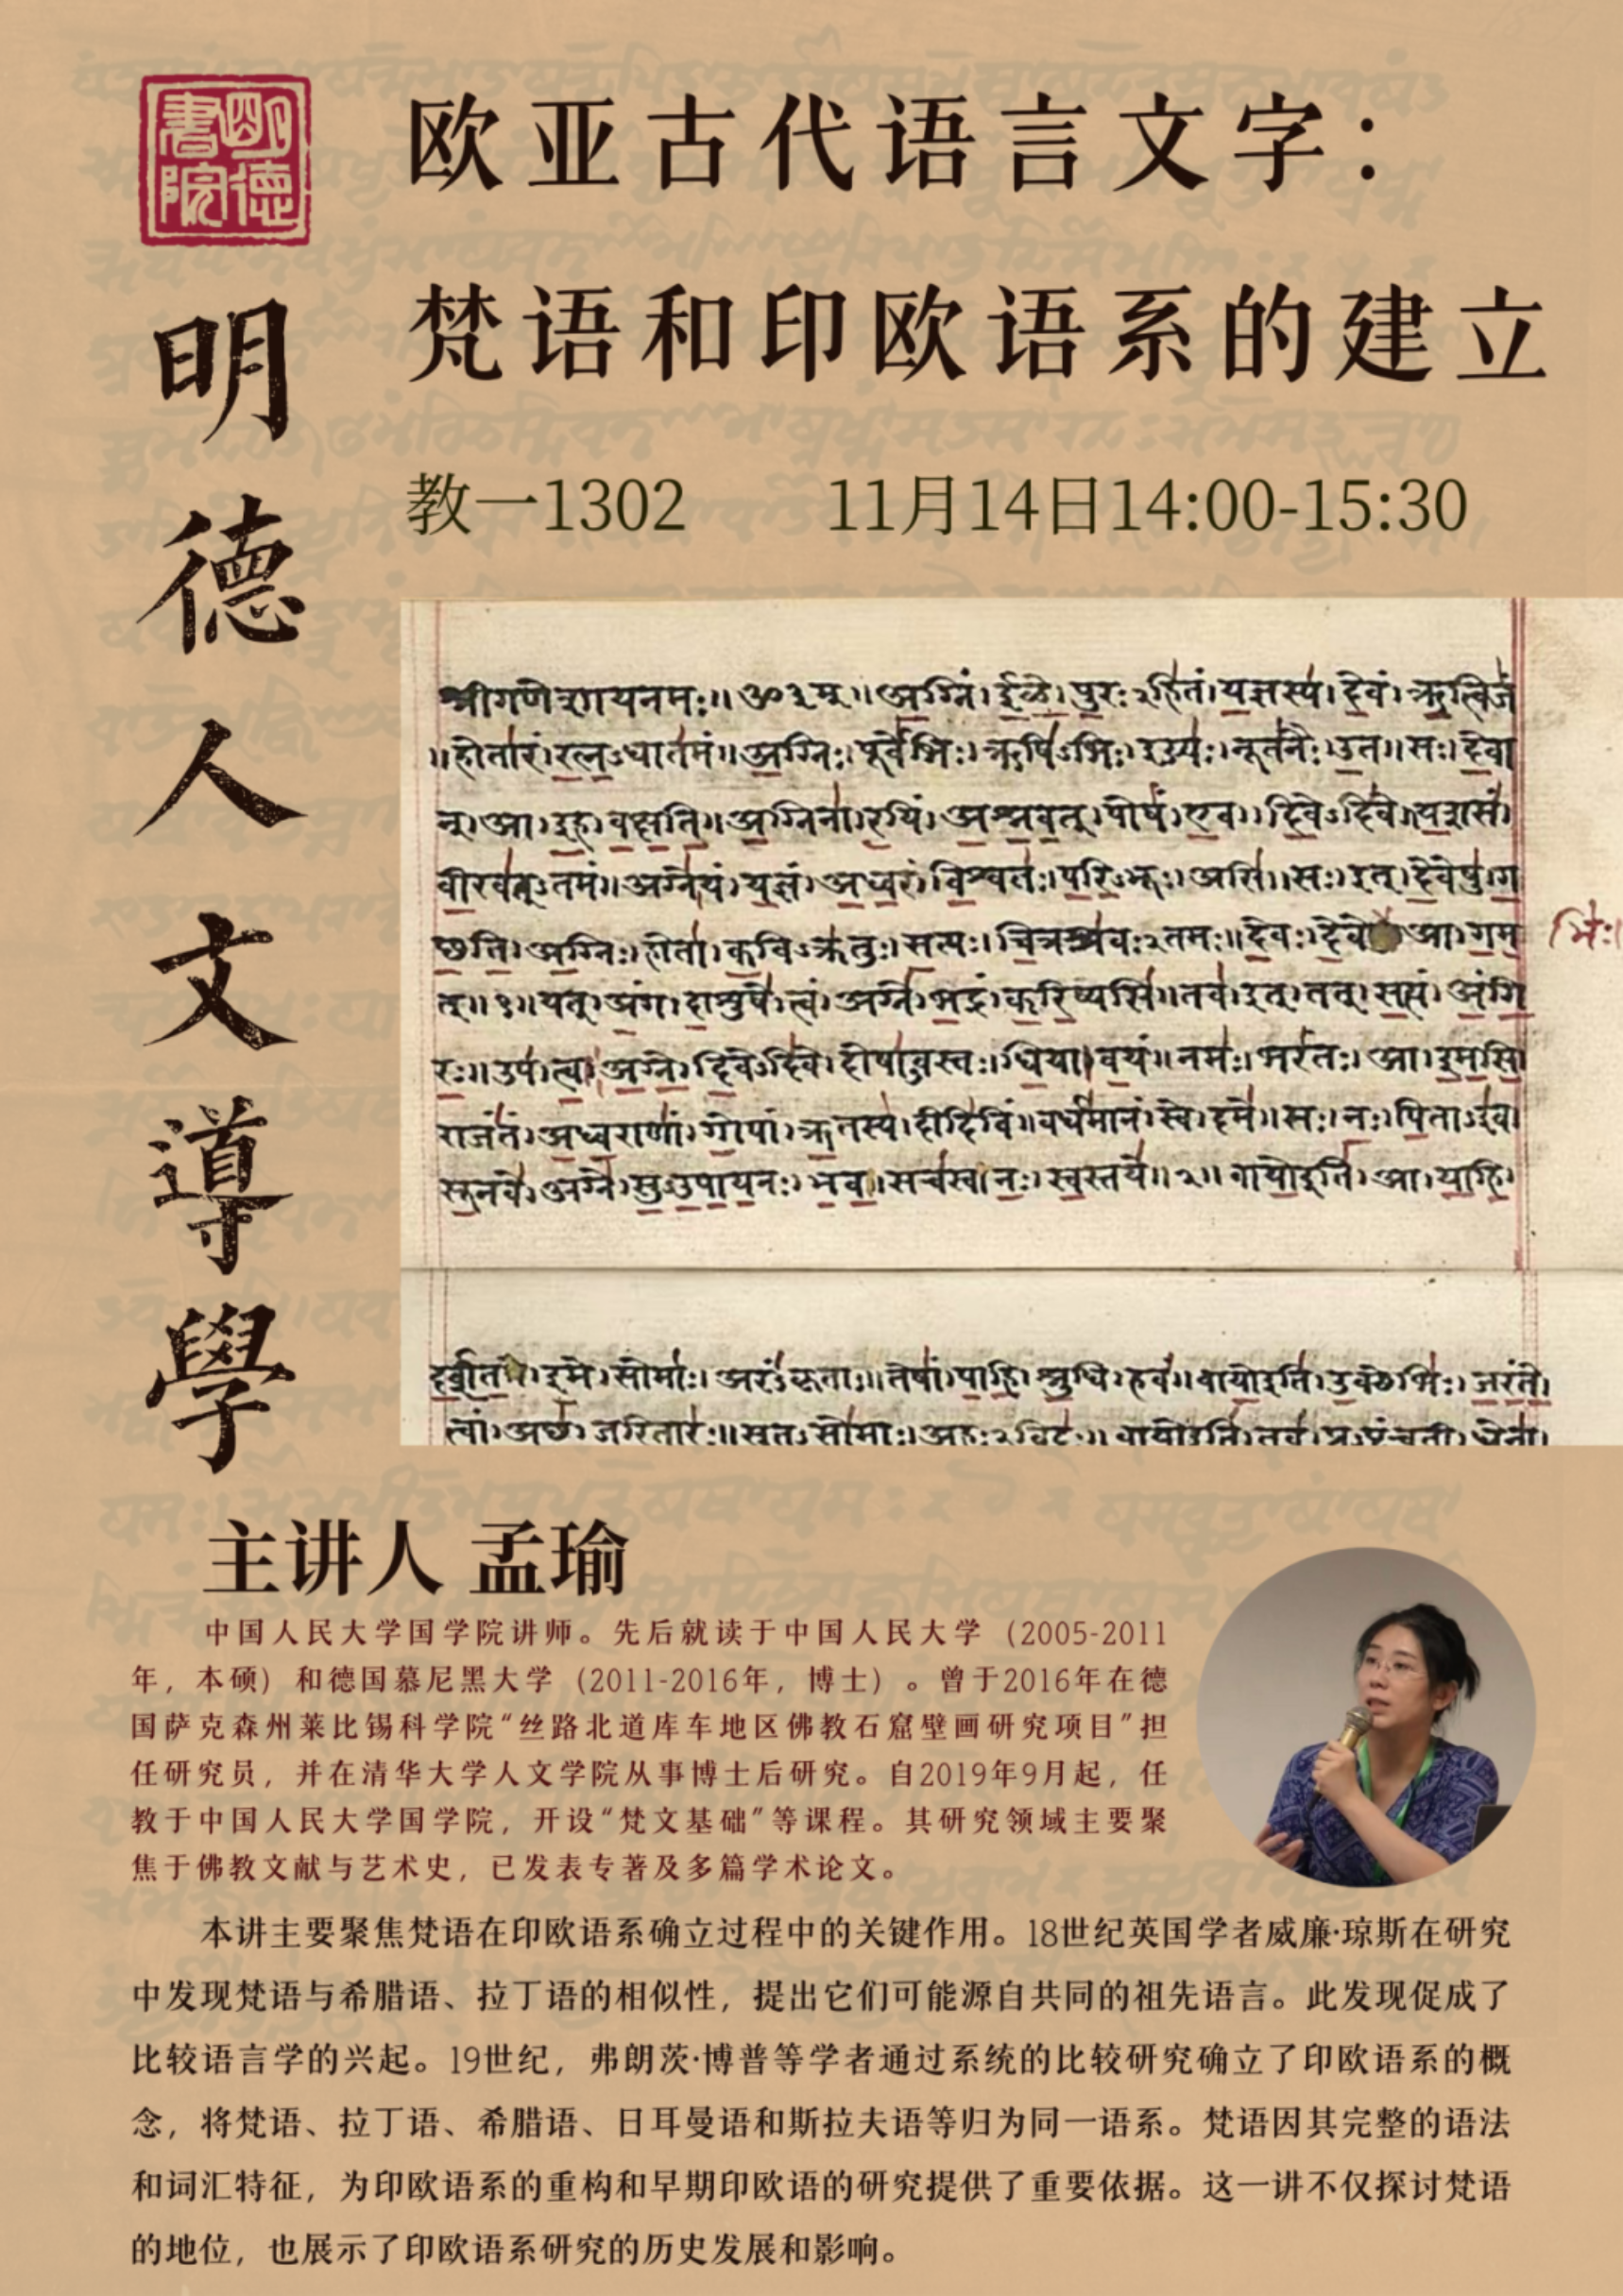 明德書院
欧亚古代语言文字：
梵语和印欧语系的建立
教一1302 11月14日14:00-15:30
明德人文導學
श्रीगणेशायनमः॥ॐ३म्॥अग्निं।ईळे।पुरःऽहितं।यज्ञस्य।देवं।ऋत्विजं
॥होतारं।रत्नऽधातमं॥अग्निः।पूर्वेभिः।ऋषिऽभिः।ईड्यः।नूतनैः।उत॥सः।देवा
न्।आ।इह।वक्षति॥अग्निना।रयिं।अश्नवत्।पोषं।एव।दिवेऽदिवे।यशसं।
वीरवत्ऽतमं॥अग्नेयं।यज्ञं।अध्वरं।विश्वतः।परिऽभूः।असि॥सः।इत्।देवेषु।ग
छति।अग्निः।होता।कविऽक्रतुः।सत्यः।चित्रश्रवःऽतमः॥देवः।आ।गम
त्॥१॥यत्।अंग।दाशुषे।त्वं।अग्ने।भद्रं।करिष्यसि॥तव।इत्।तत्।सत्यं।अंगि
रः॥उप।त्वा।अग्ने।दिवेऽदिवे।दोषाऽवस्तः।धिया।वयं॥नमः।भरंतः।आ।इमसि
राजंतं।अध्वराणां।गोपां।ऋतस्य।दीदिविं॥वर्धमानं।स्वे।दमे॥सः।नः।पिताऽइव।
सूनवे।अग्ने।सुऽउपायनः।भव॥सचस्व।नः।स्वस्तये॥२॥वायोइति।आ।याहि।
इमे।सोमाः।अरंऽकृताः॥तेषां।पाहि।श्रुधि।हवं॥वायोइति।उक्थेभिः।जरंते।
त्वां।अछ।जरितारः॥सुतऽसोमाः।अहःऽविदः॥वायोइति।तव।प्रऽपृंचती।धेना।
主讲人 孟瑜
中国人民大学国学院讲师。先后就读于中国人民大学（2005-2011
年，本硕）和德国慕尼黑大学（2011-2016年，博士）。曾于2016年在德
国萨克森州莱比锡科学院“丝路北道库车地区佛教石窟壁画研究项目”担
任研究员，并在清华大学人文学院从事博士后研究。自2019年9月起，任
教于中国人民大学国学院，开设“梵文基础”等课程。其研究领域主要聚
焦于佛教文献与艺术史，已发表专著及多篇学术论文。
本讲主要聚焦梵语在印欧语系确立过程中的关键作用。18世纪英国学者威廉·琼斯在研究
中发现梵语与希腊语、拉丁语的相似性，提出它们可能源自共同的祖先语言。此发现促成了
比较语言学的兴起。19世纪，弗朗茨·博普等学者通过系统的比较研究确立了印欧语系的概
念，将梵语、拉丁语、希腊语、日耳曼语和斯拉夫语等归为同一语系。梵语因其完整的语法
和词汇特征，为印欧语系的重构和早期印欧语的研究提供了重要依据。这一讲不仅探讨梵语
的地位，也展示了印欧语系研究的历史发展和影响。